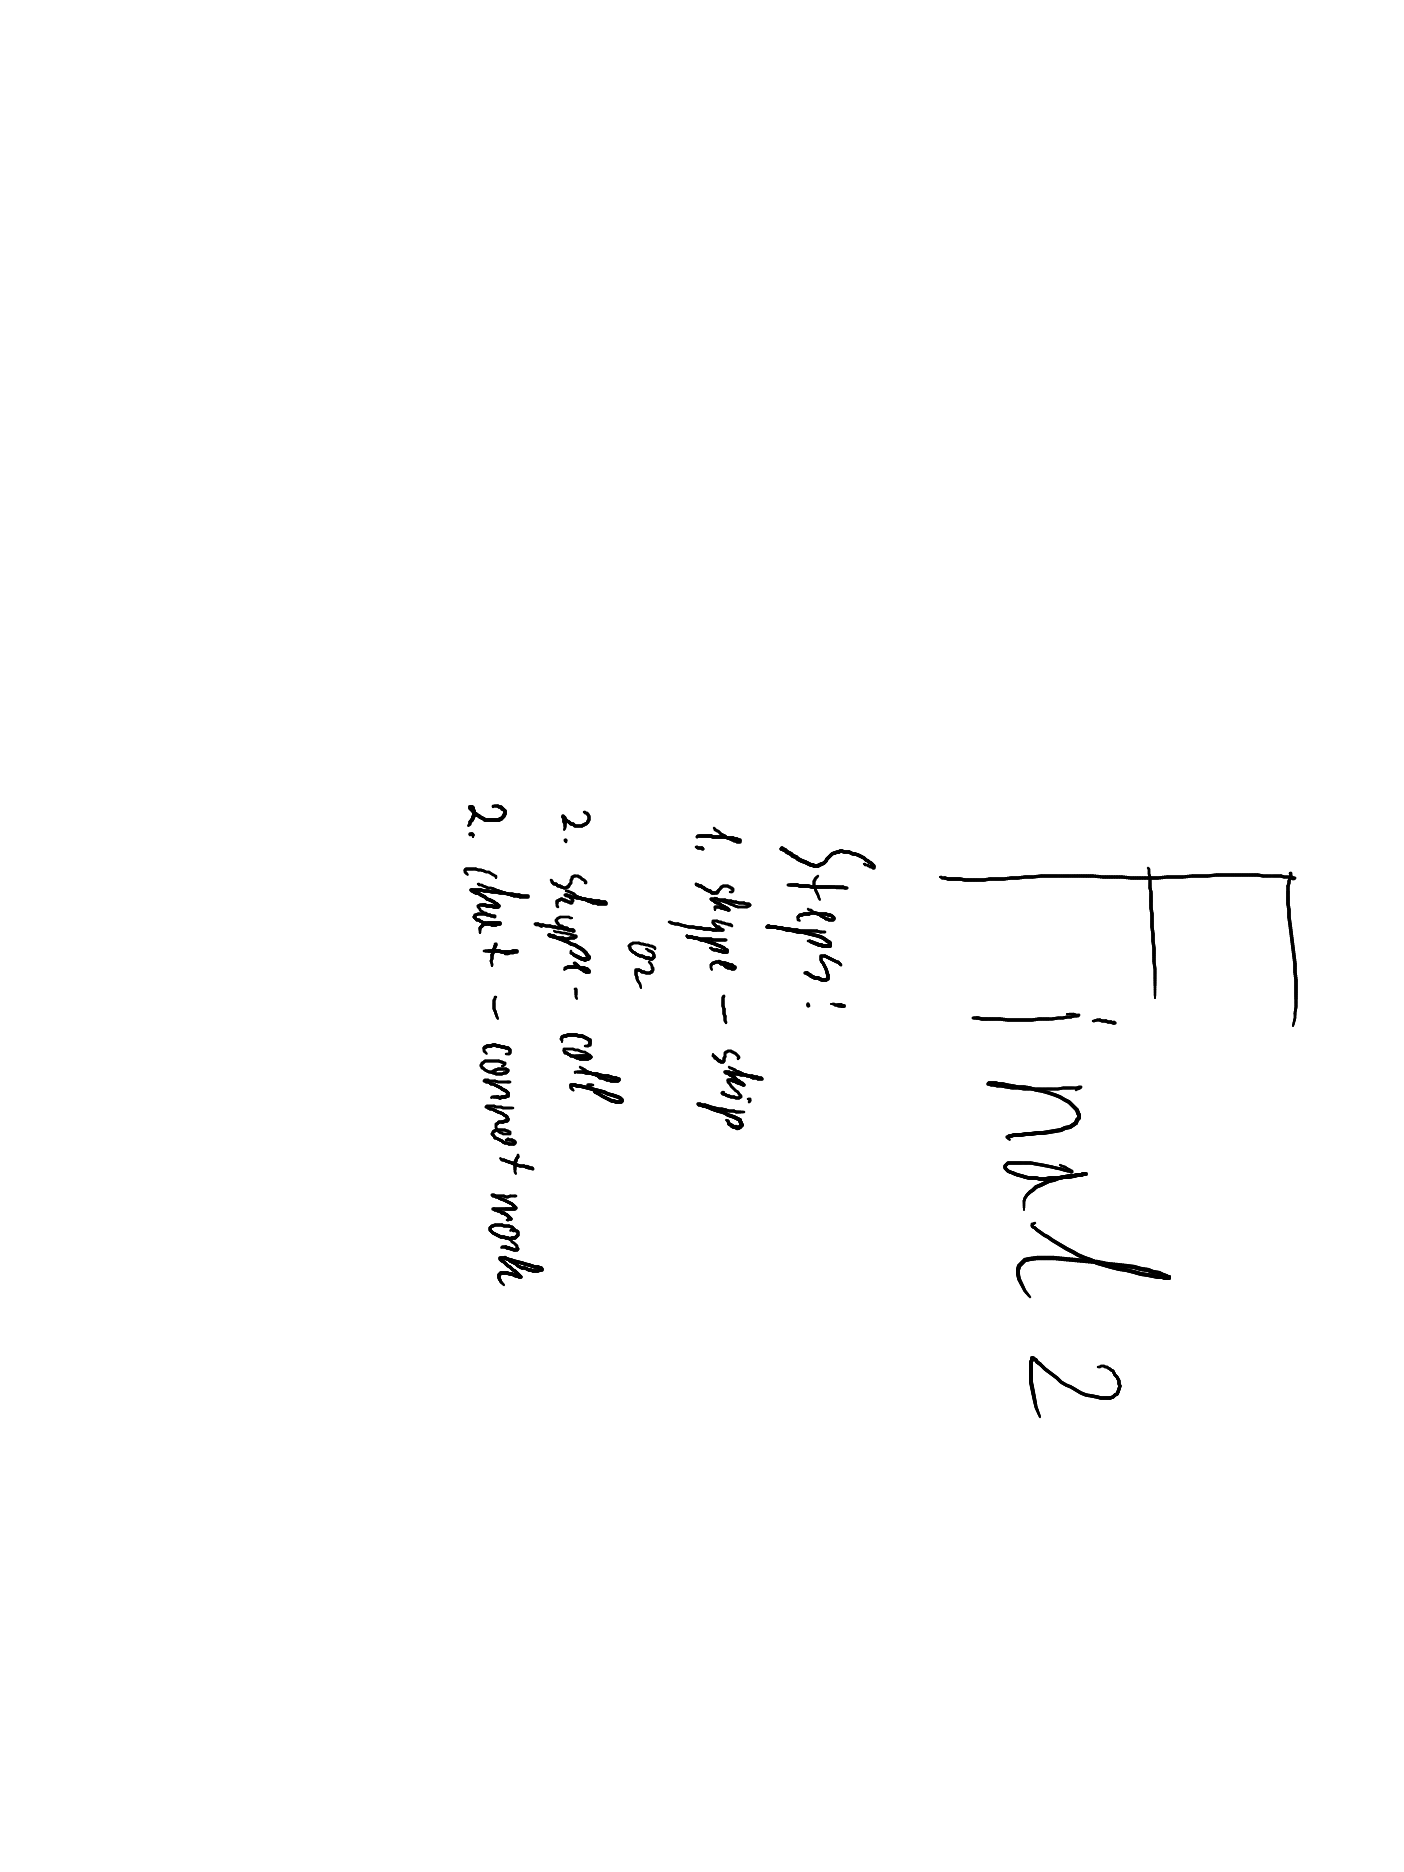 Final 2
Steps:
1. skype - skip
or
2. skype - call
2. chat - connot work